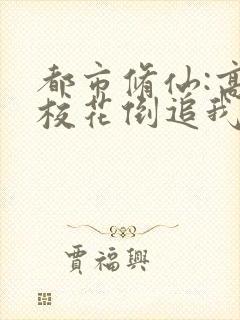 都市脩仙:高
校花倒追我
賈福興